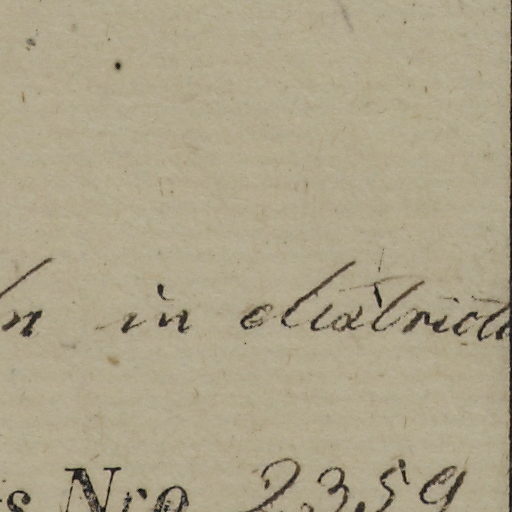 in districtu
s Nro 2359